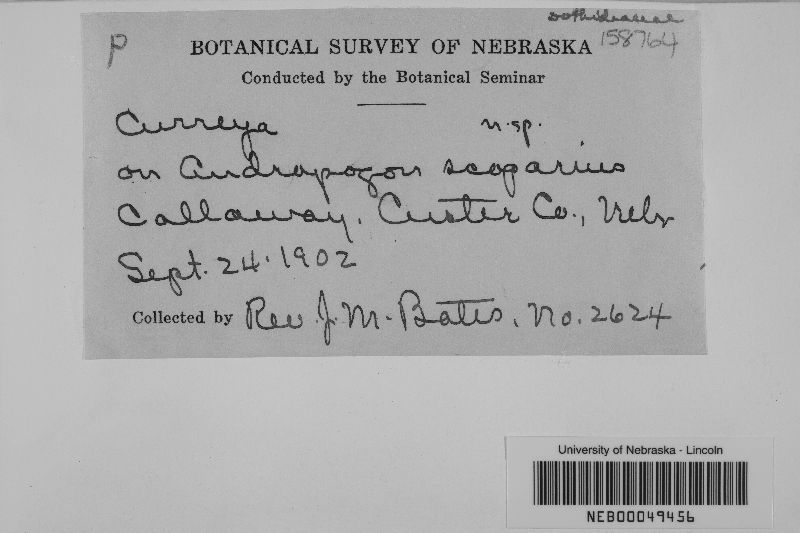 Dothideaceae
P
158764
BOTANICAL SURVEY OF NEBRASKA
Conducted by the Botanical Seminar
Curreya n.sp.
on Andropogon scoparius
Callaway, Custer Co., Nebr
Sept. 24. 1902
Collected by Rev. J. M. Bates, No. 2624
University of Nebraska - Lincoln
NEB00049456